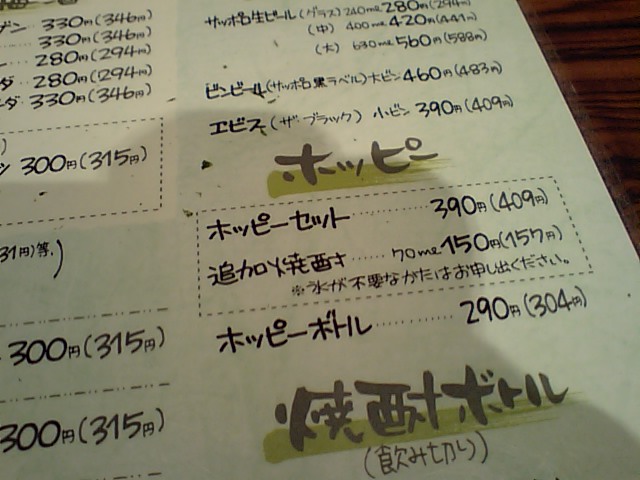 ン 330円(346円)
330円(346円)
ー 280円(294円)
ダ 280円(294円)
ーダ 330円(346円)
300円(315円)
31円)等.)
300円(315円)
300円(315円)
サッポロ生ビール(グラス) 240ml 280円(294円)
(中) 400ml 420円(441円)
(大) 630ml 560円(588円)
ビンビール(サッポロ黒ラベル)大ビン 460円(483円)
エビス(ザ・ブラック) 小ビン 390円(409円)
ホッピー
ホッピーセット………… 390円(409円)
追加焼酎…… 70ml 150円(157円)
※氷が不要なかたはお申し出ください。
ホッピーボトル………… 290円(304円)
焼酎ボトル
(飲み切り)